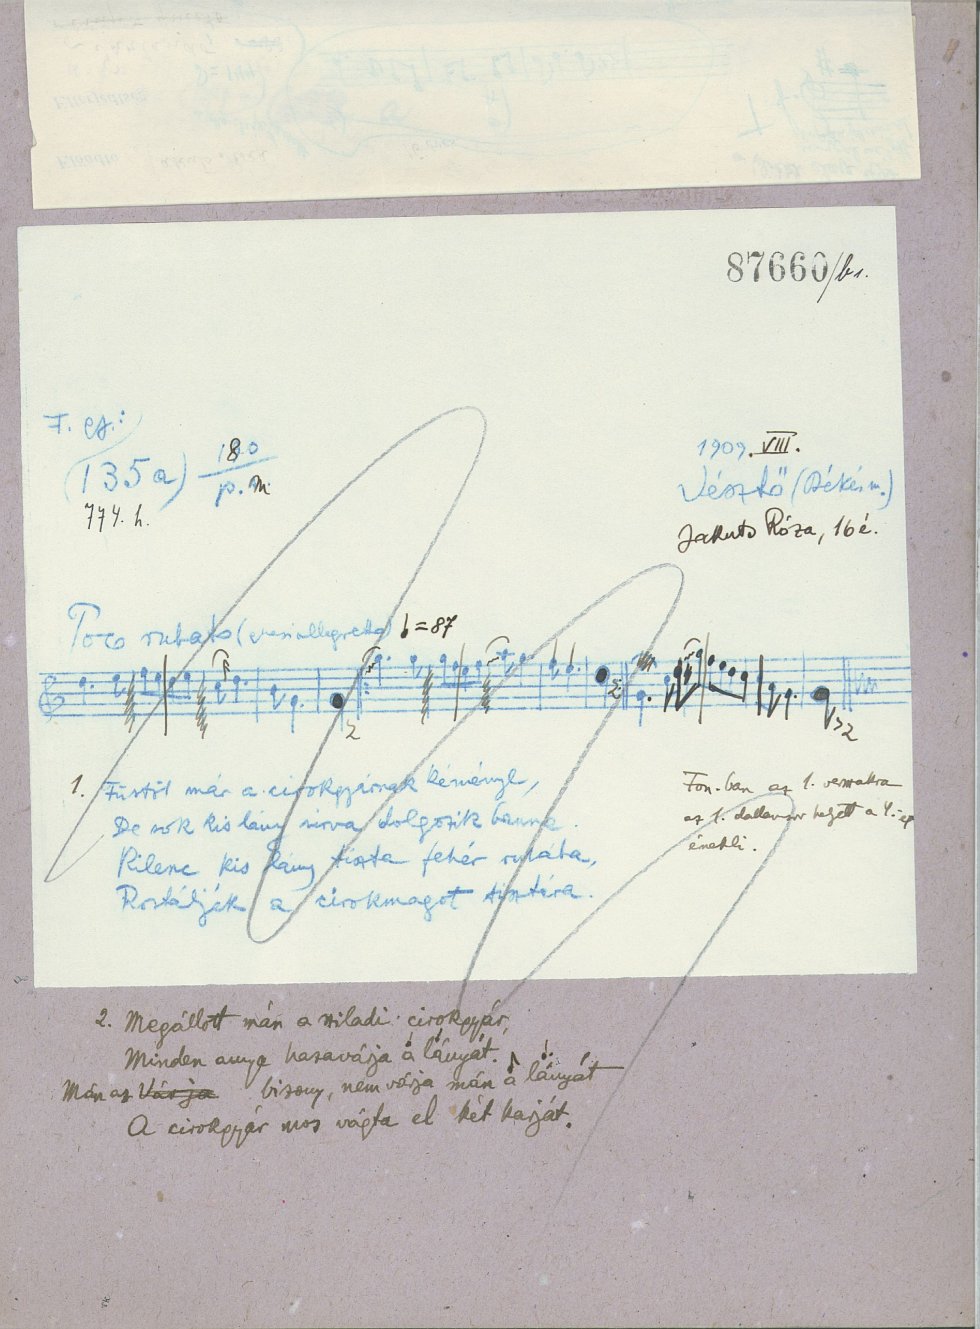 87660/b1.
F. gy.:
(135a) 180
p. m.
774. h.
1909. VIII.
Vésztő (Békés m.)
Jakuts Róza, 16 é.
Poco rubato (quasi allegretto) = 87
1. Füstöl már a cirokgyárnak kéménye,
De sok kis lány sírva dolgozik benne.
Kilenc kis lány tiszta fehér ruhába,
Rostálják a cirokmagot tisztára.
Fon.-ban az 1. versszakra
az 1. dallamsor helyett a 4.-et
énekli.
2. Megállott mán a sziladi cirokgyár,
Minden anya hazavárja a lányát.
Mán az Várja bizony, nem várja mán a lányát
A cirokgyár mos vágta el két karját.